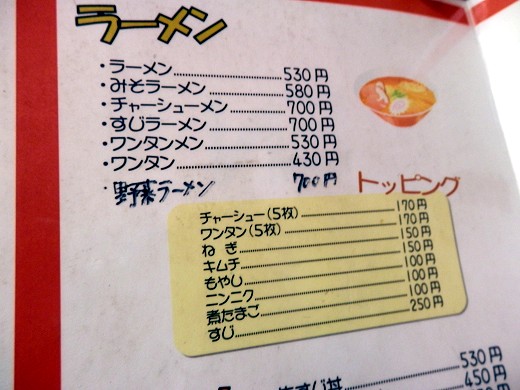 ラーメン
・ラーメン 530円
・みそラーメン 580円
・チャーシューメン 700円
・すじラーメン 700円
・ワンタンメン 530円
・ワンタン 430円
・野菜ラーメン 700円
トッピング
チャーシュー(5枚) 170円
ワンタン(5枚) 170円
ねぎ 150円
キムチ 150円
もやし 100円
ニンニク 100円
煮たまご 100円
すじ 250円
すじ丼 530円
450円